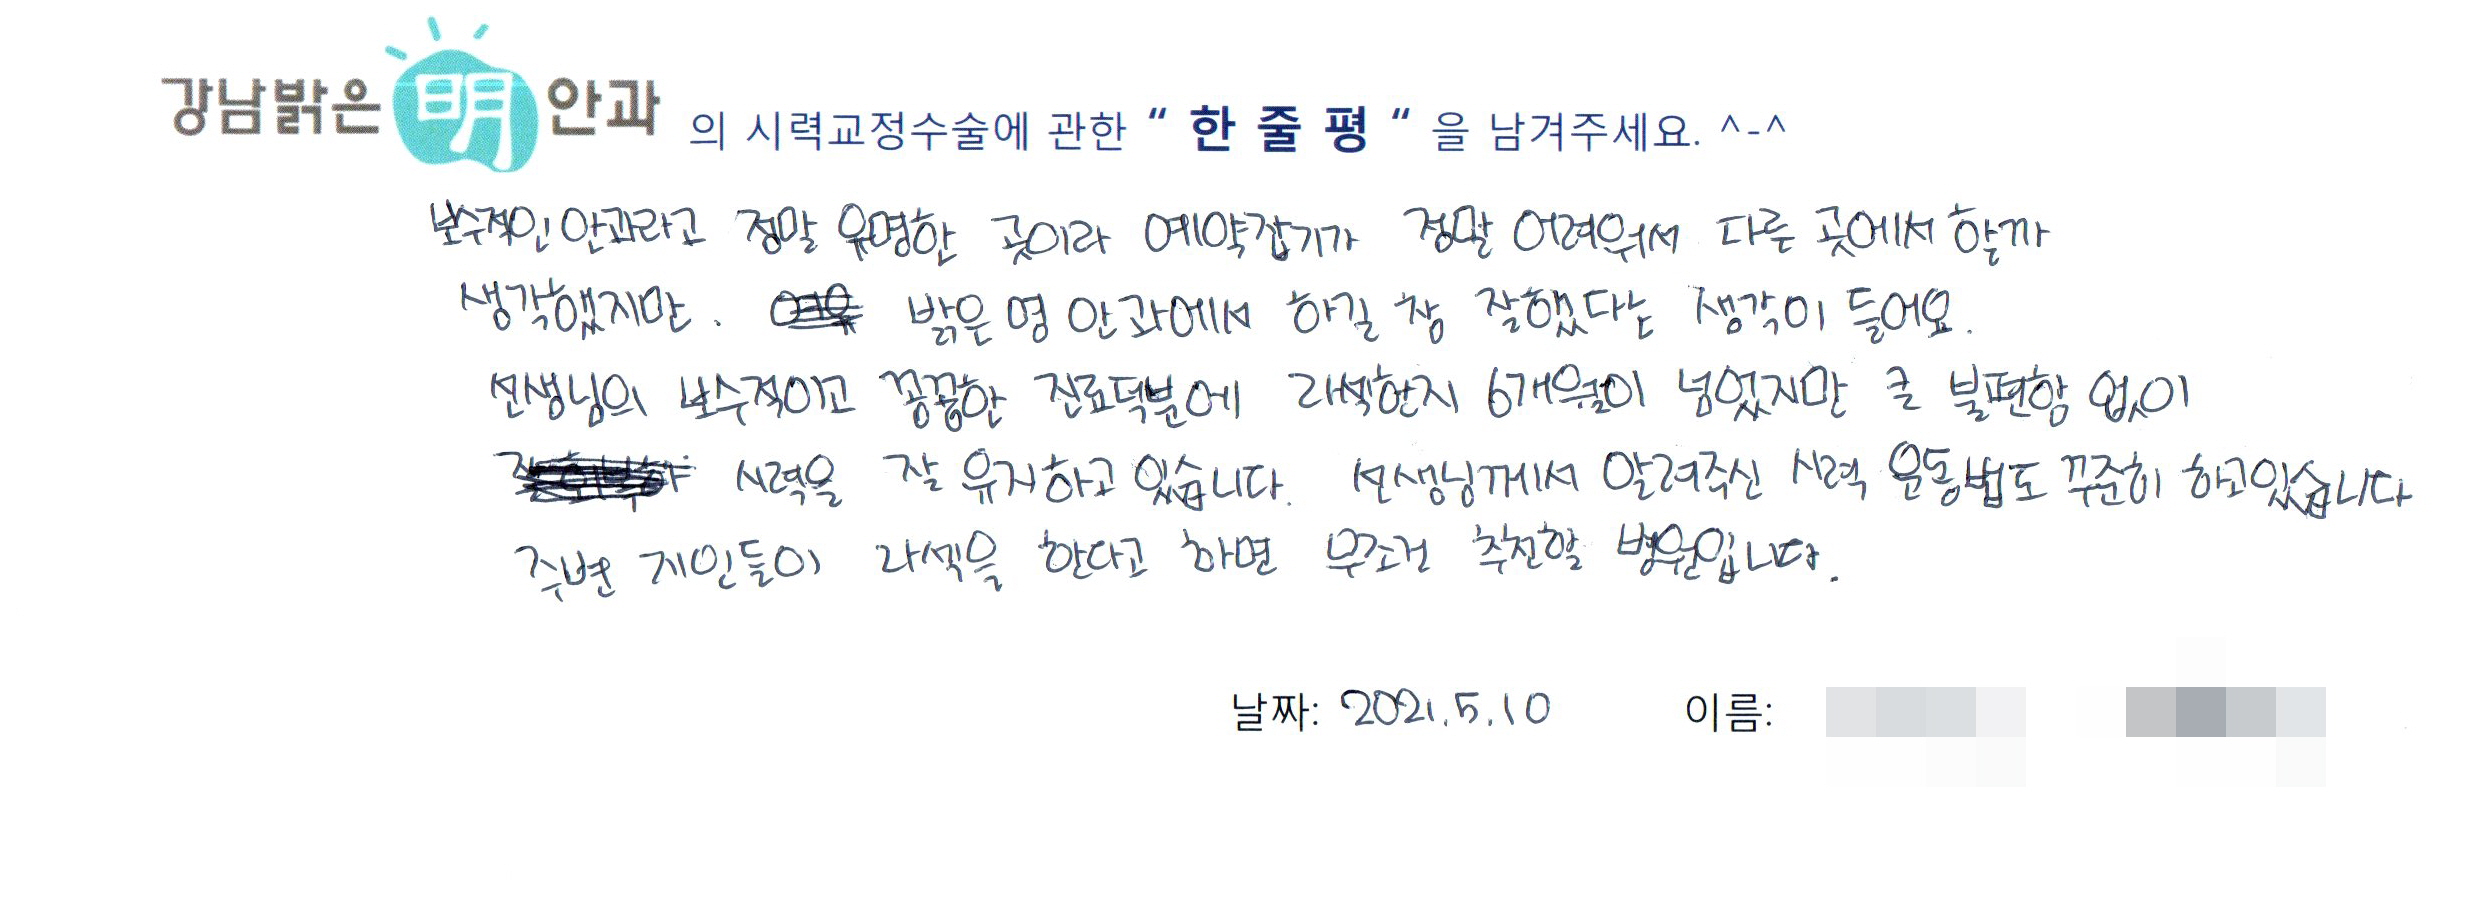 강남밝은明안과 의 시력교정수술에 관한 “ 한 줄 평 “ 을 남겨주세요. ^-^
보수적인 안과라고 정말 유명한 곳이라 예약잡기가 정말 어려워서 다른 곳에서 할까
생각했지만. 밝은 명 안과에서 하길 참 잘했다는 생각이 들어요.
선생님의 보수적이고 꼼꼼한 진료덕분에 라섹한지 6개월이 넘었지만 큰 불편함 없이
시력을 잘 유지하고 있습니다. 선생님께서 알려주신 시력 운동법도 꾸준히 하고있습니다
주변 지인들이 라섹을 한다고 하면 무조건 추천할 병원입니다.
날짜: 2021.5.10 이름: